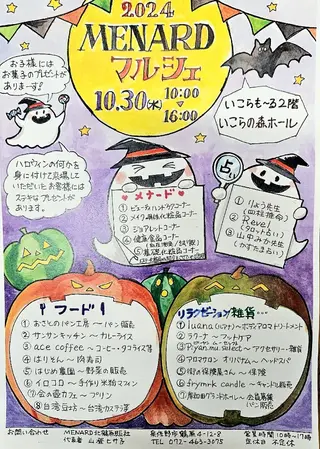 2024
MENARD
マルシェ
10.30(水) 10:00〜16:00
お子様には
お菓子のプレゼントが
ありまーす!
いこらも〜る2階
いこらの森ホール
ハロウィンの何かを
身に付けて来場して
いただいたお客様には
ステキなプレゼントが
あります。
占い
①りょう先生
(四柱推命)
②Revel
(タロット占い)
③山中みか先生
メナード
①ビューティハンドケアコーナー
③ジュエレットコーナー
④健康食品コーナー
⑤基礎化粧品コーナー
フード
①おさとのパン工房〜パン販売
②サンサンキッチン〜カレーライス
③ace coffee〜コーヒー・タコライス等
④はりそん〜肉寿司
⑤はじめ農園〜野菜の販売
⑥イロコロ〜手作り米粉マフィン
⑦金の森カフェ〜プリン
⑧台湾豆坊〜台湾カステラ
リラクゼーション・雑貨…
①luana(ルアナ)〜ボディアロマトリートメント
②ララーナ〜フットケア
③Piyan.mu.select〜アクセサリー・雑貨
④アロマサロン オリバサム〜ヘッドスパ
⑤街の保険屋さん〜保険
⑥frymrik candle〜キャンドル販売
パン販売
お問い合わせ
代表者 山登ヒサ子
泉佐野市鶴原4-12-8
TEL 072-463-3075
営業時間10時〜17時
定休日 不定休